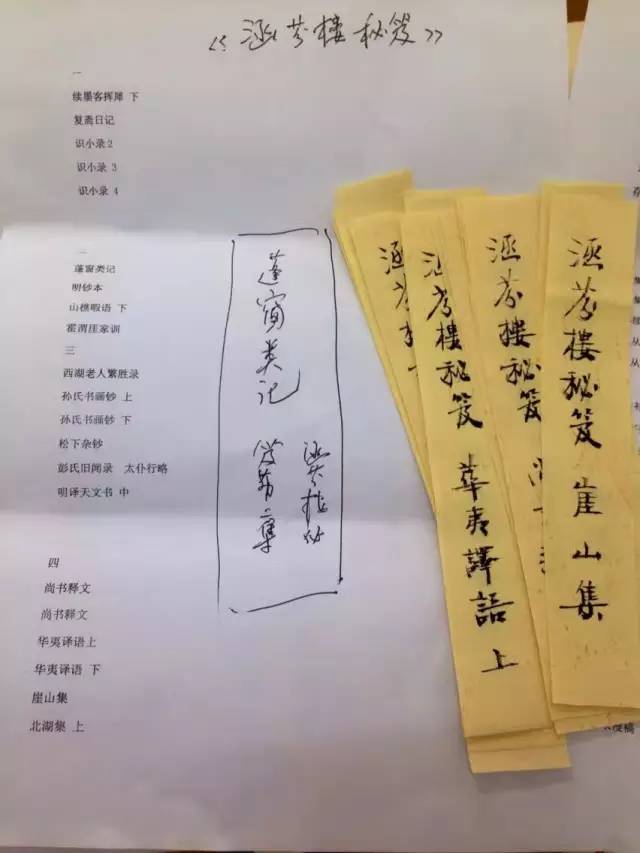 《涵芬楼秘笈》
一
续墨客挥犀 下
复斋日记
识小录2
识小录 3
识小录 4
二
蓬窗类记
明钞本
山樵暇语 下
霍渭厓家训
三
西湖老人繁胜录
孙氏书画钞 上
孙氏书画钞 下
松下杂钞
彭氏旧闻录 太仆行略
明译天文书 中
四
尚书释文
尚书释文
华夷译语上
华夷译语 下
崖山集
北湖集 上
蓬窗类记
涵芬楼秘
笈第二集
涵芬楼
涵芬樓秘笈 華夷譯語 上
涵芬樓秘笈
涵芬樓秘笈 崖山集